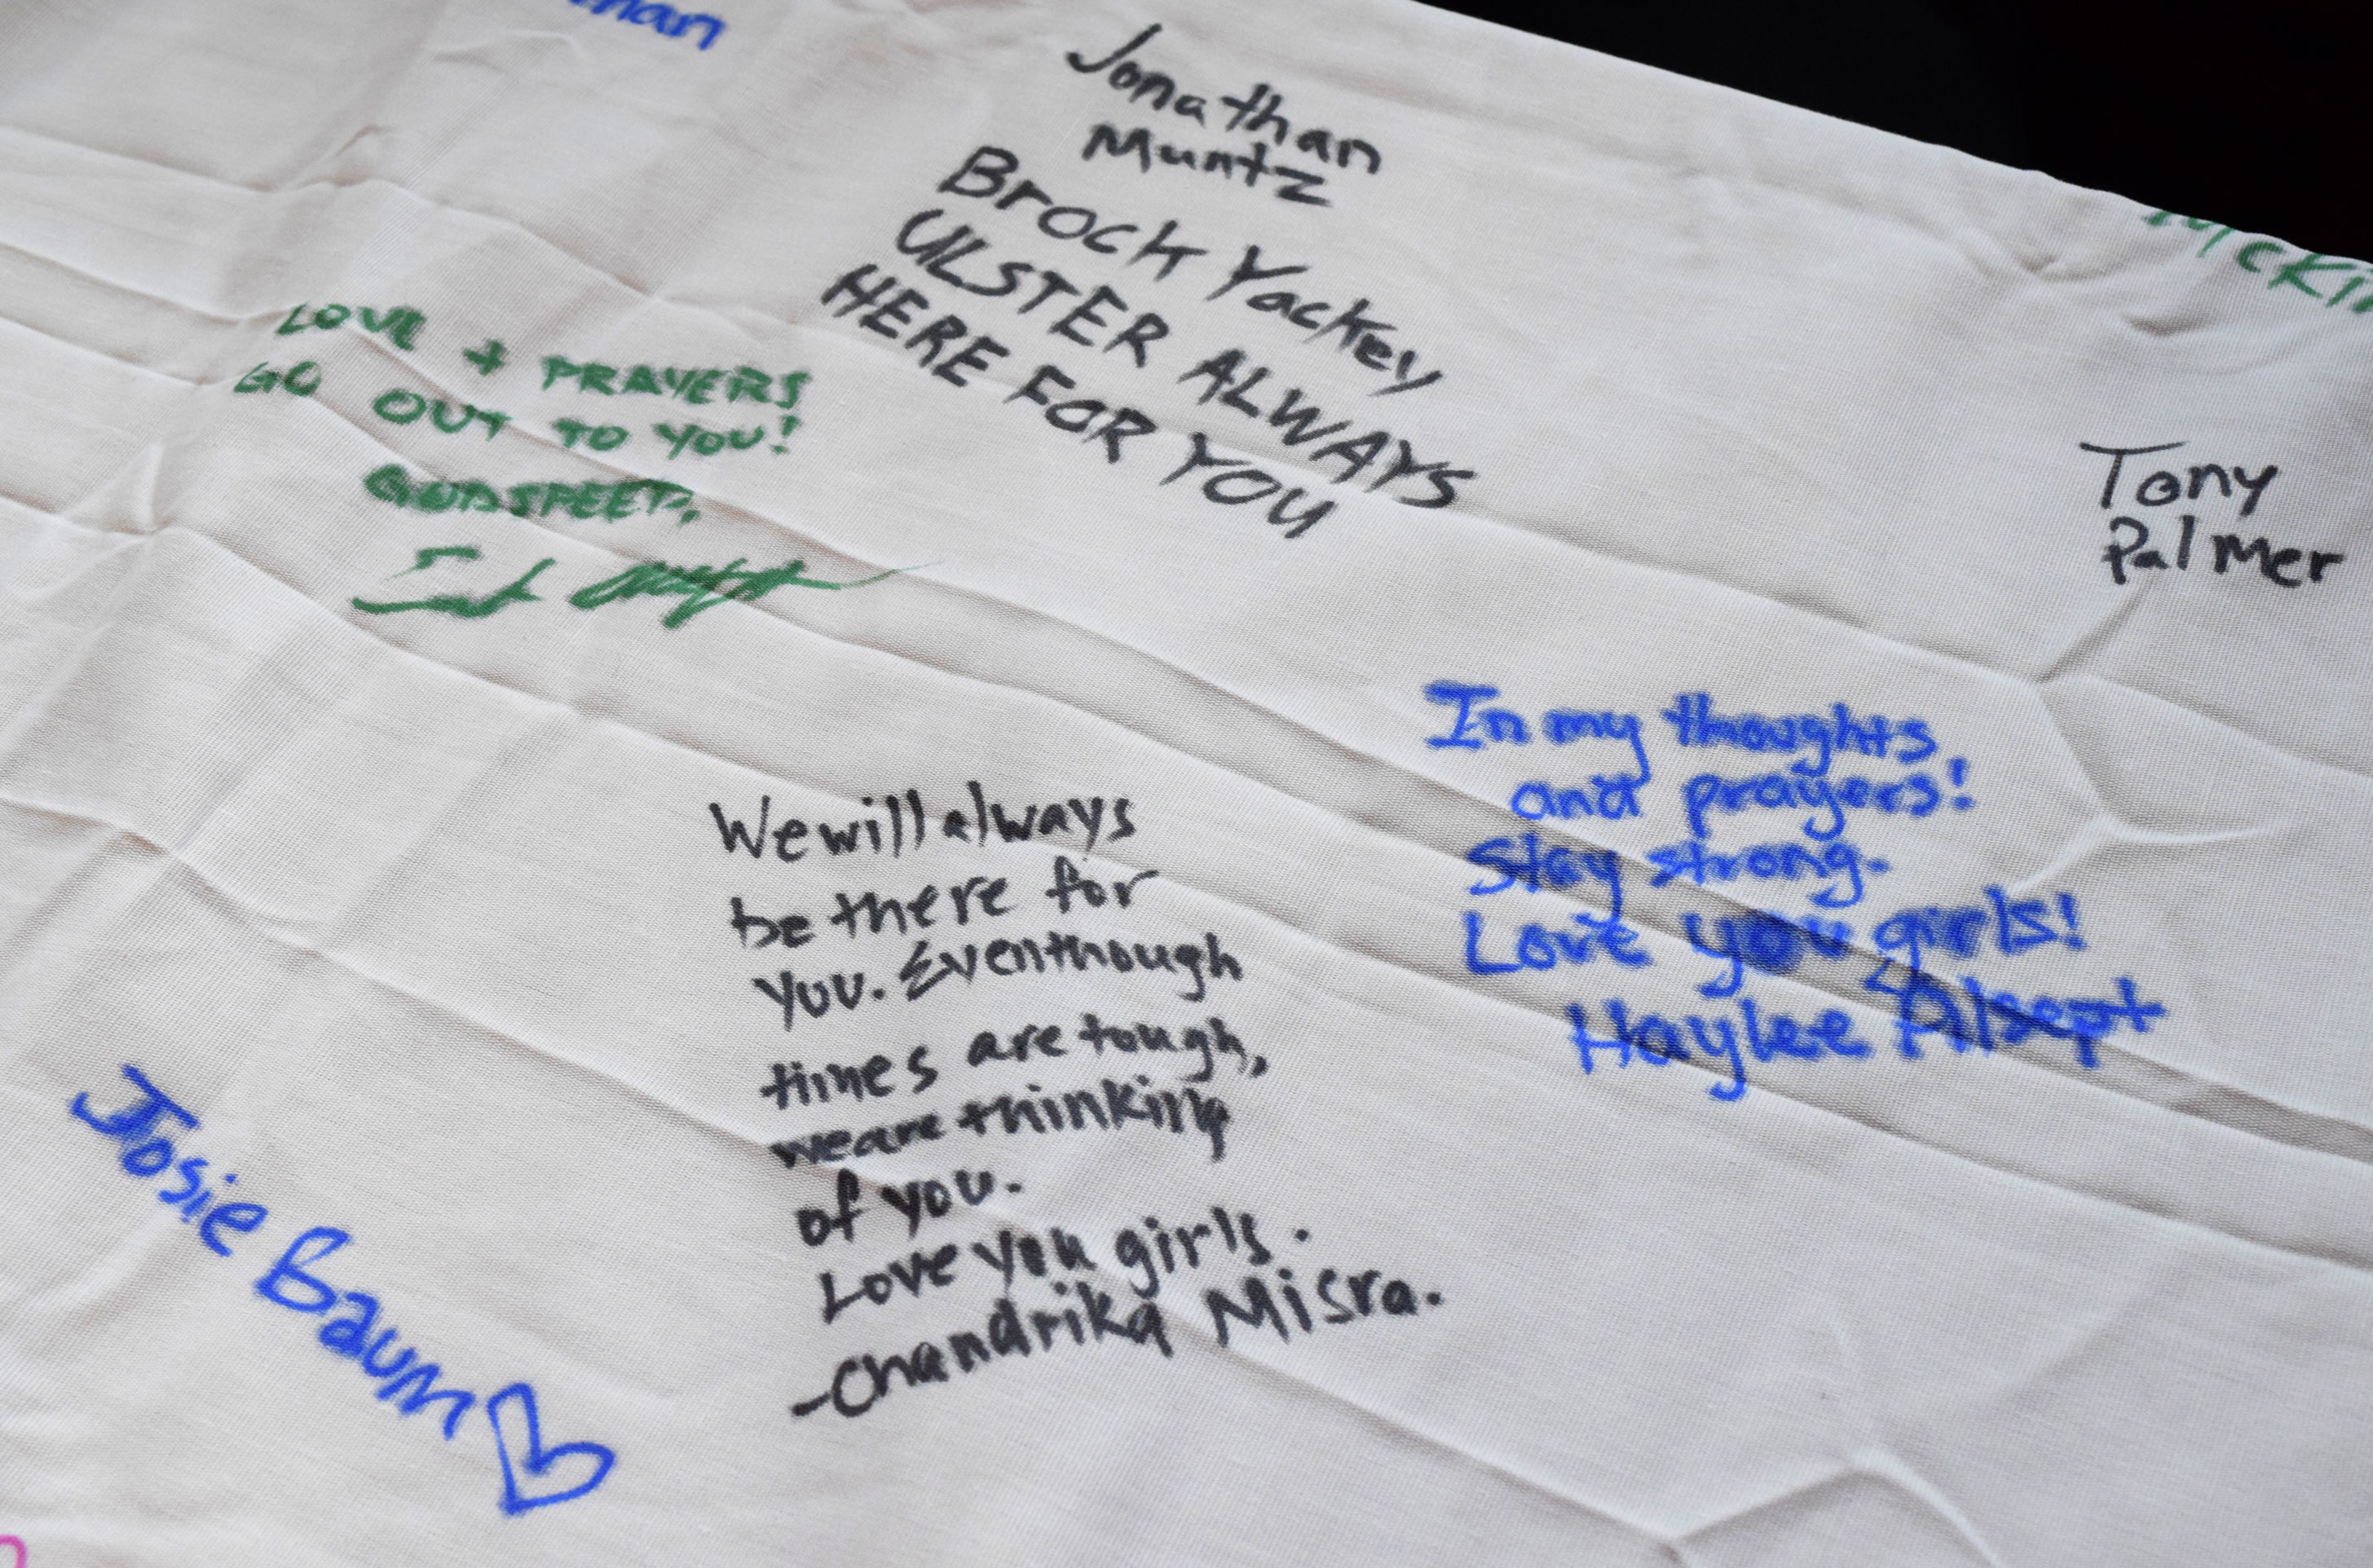 Jonathan
Muntz
Brock Yackey
ULSTER ALWAYS
HERE FOR YOU
LOVE + PRAYERS
GO OUT TO YOU!
GODSPEED,
Tony
Palmer
In my thoughts
and prayers!
Stay strong.
Love you girls!
Haylee Alsept
We will always
be there for
you. Eventhough
times are tough,
we are thinking
of you.
Love you girls.
-Chandrika Misra.
Josie Baum